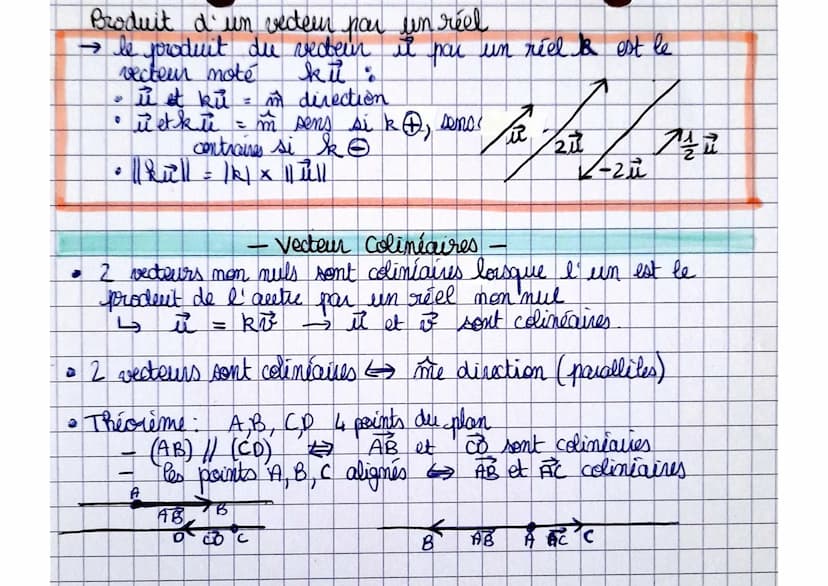 Produit d'un vecteur par un réel
→ le produit du vecteur u⃗ par un réel k est le
vecteur noté ku⃗ :
• u⃗ et ku⃗ = m̂ direction
• u⃗ et ku⃗ = m̂ sens si k ⊕, sens
contraires si k ⊖
• ||ku⃗|| = |k| × ||u⃗||
u⃗ 2u⃗ -2u⃗ 1/2 u⃗
— Vecteur Colinéaires —
• 2 vecteurs non nuls sont colinéaires lorsque l'un est le
produit de l'autre par un réel non nul
↳ u⃗ = kv⃗ → u⃗ et v⃗ sont colinéaires.
• 2 vecteurs sont colinéaires ⇔ m̂e direction (parallèles)
• Théorème : A,B, C,D 4 points du plan
- (AB) // (CD) ⇔ AB⃗ et CD⃗ sont colinéaires
- les points A, B, C alignés ⇔ AB⃗ et AC⃗ colinéaires
A AB⃗ B
D CD⃗ C
B AB⃗ A AC⃗ C